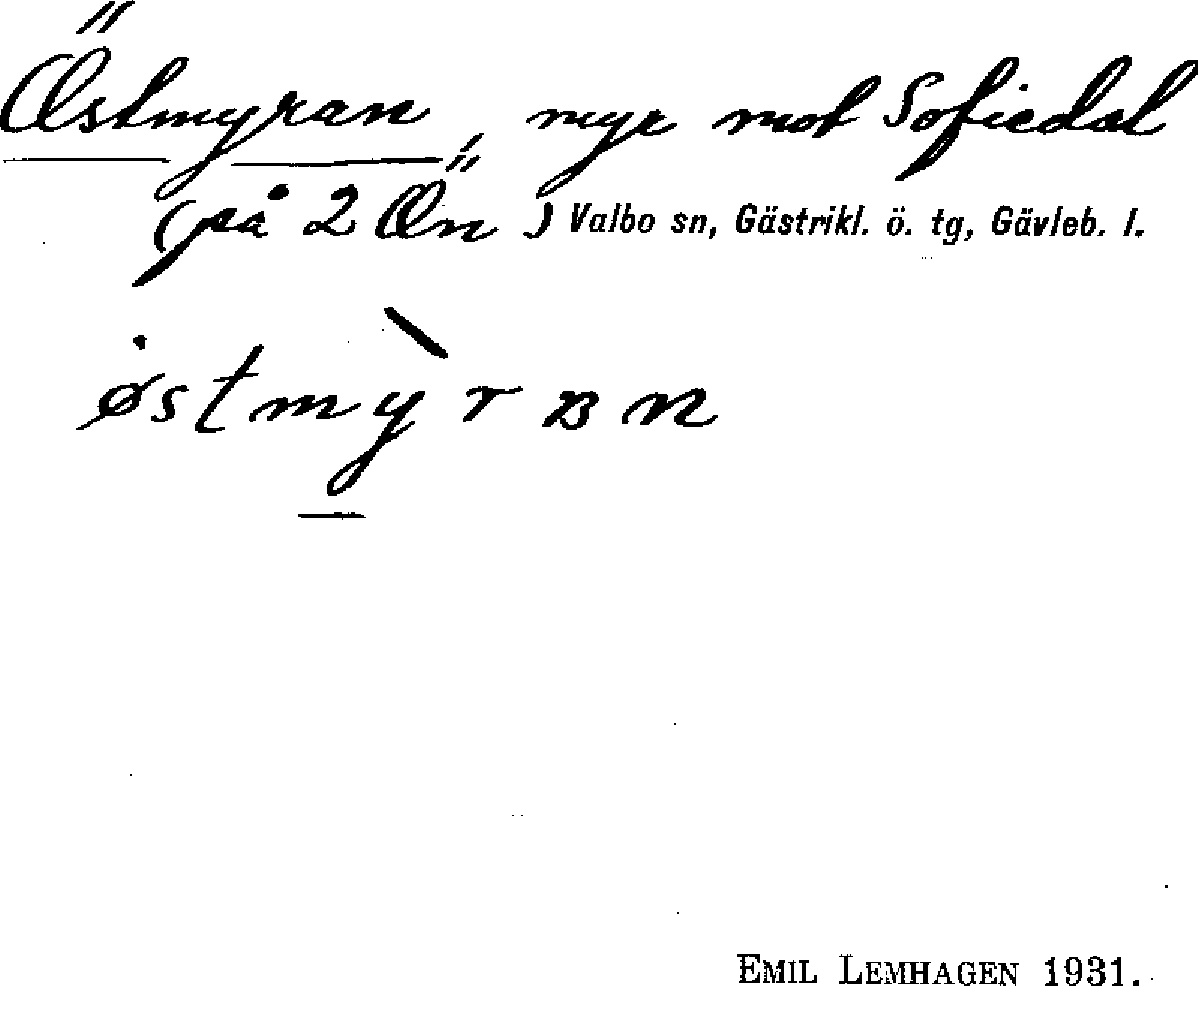 Östmyran, myr mot Sofiedal
(på 2 Ön) Valbo sn, Gästrikl. ö. tg, Gävleb. l.
østmỳrʙn
EMIL LEMHAGEN 1931.